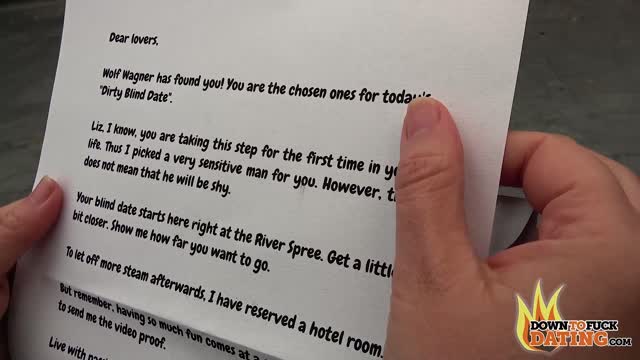 Dear lovers,
Wolf Wagner has found you! You are the chosen ones for today's
"Dirty Blind Date".
Liz, I know, you are taking this step for the first time in
life. Thus I picked a very sensitive man for you. However,
does not mean that he will be shy.
Your blind date starts here right at the River Spree. Get a little
bit closer. Show me how far you want to go.
To let off more steam afterwards, I have reserved a hotel room.
But remember, having so much fun comes at a
to send me the video proof.
Live with
DOWN TO FUCK
DATING.COM